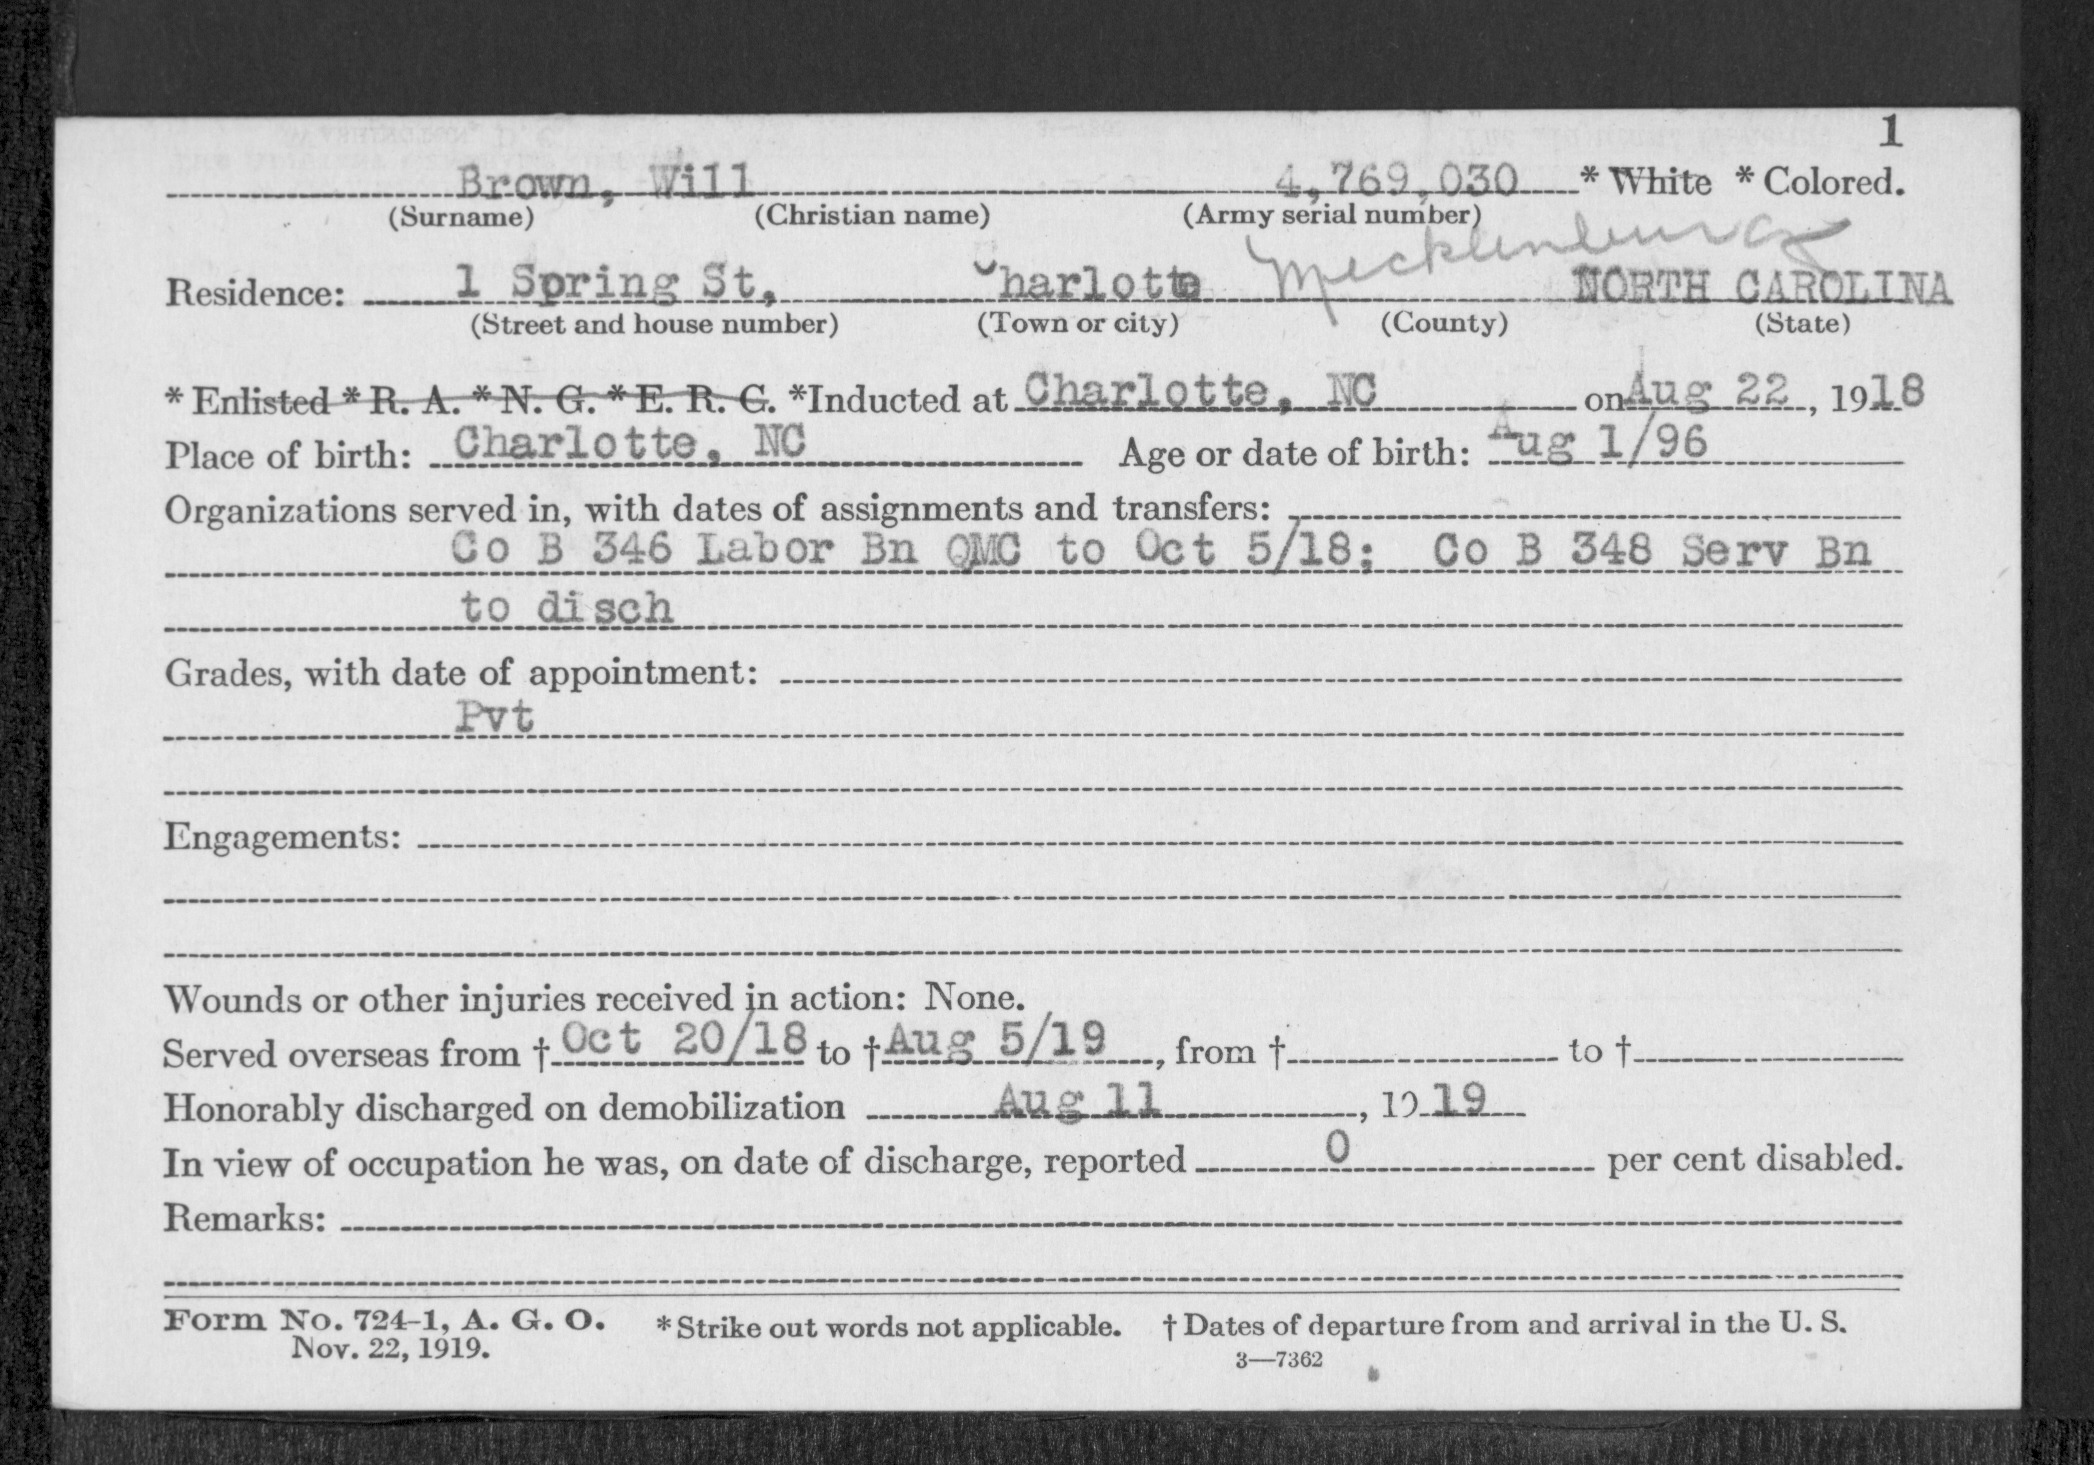 1
Brown, Will 4,769,030 * White * Colored.
(Surname) (Christian name) (Army serial number)
Mecklenburg
Residence: 1 Spring St, Charlotte NORTH CAROLINA
(Street and house number) (Town or city) (County) (State)
* Enlisted * R. A. * N. G. * E. R. C. *Inducted at Charlotte, NC on Aug 22, 1918
Place of birth: Charlotte, NC Age or date of birth: Aug 1/96
Organizations served in, with dates of assignments and transfers:
Co B 346 Labor Bn QMC to Oct 5/18; Co B 348 Serv Bn
to disch
Grades, with date of appointment:
Pvt
Engagements:
Wounds or other injuries received in action: None.
Served overseas from † Oct 20/18 to † Aug 5/19, from † to †
Honorably discharged on demobilization Aug 11, 19 19
In view of occupation he was, on date of discharge, reported 0 per cent disabled.
Remarks:
Form No. 724-1, A. G. O. * Strike out words not applicable. † Dates of departure from and arrival in the U. S.
Nov. 22, 1919. 3—7362